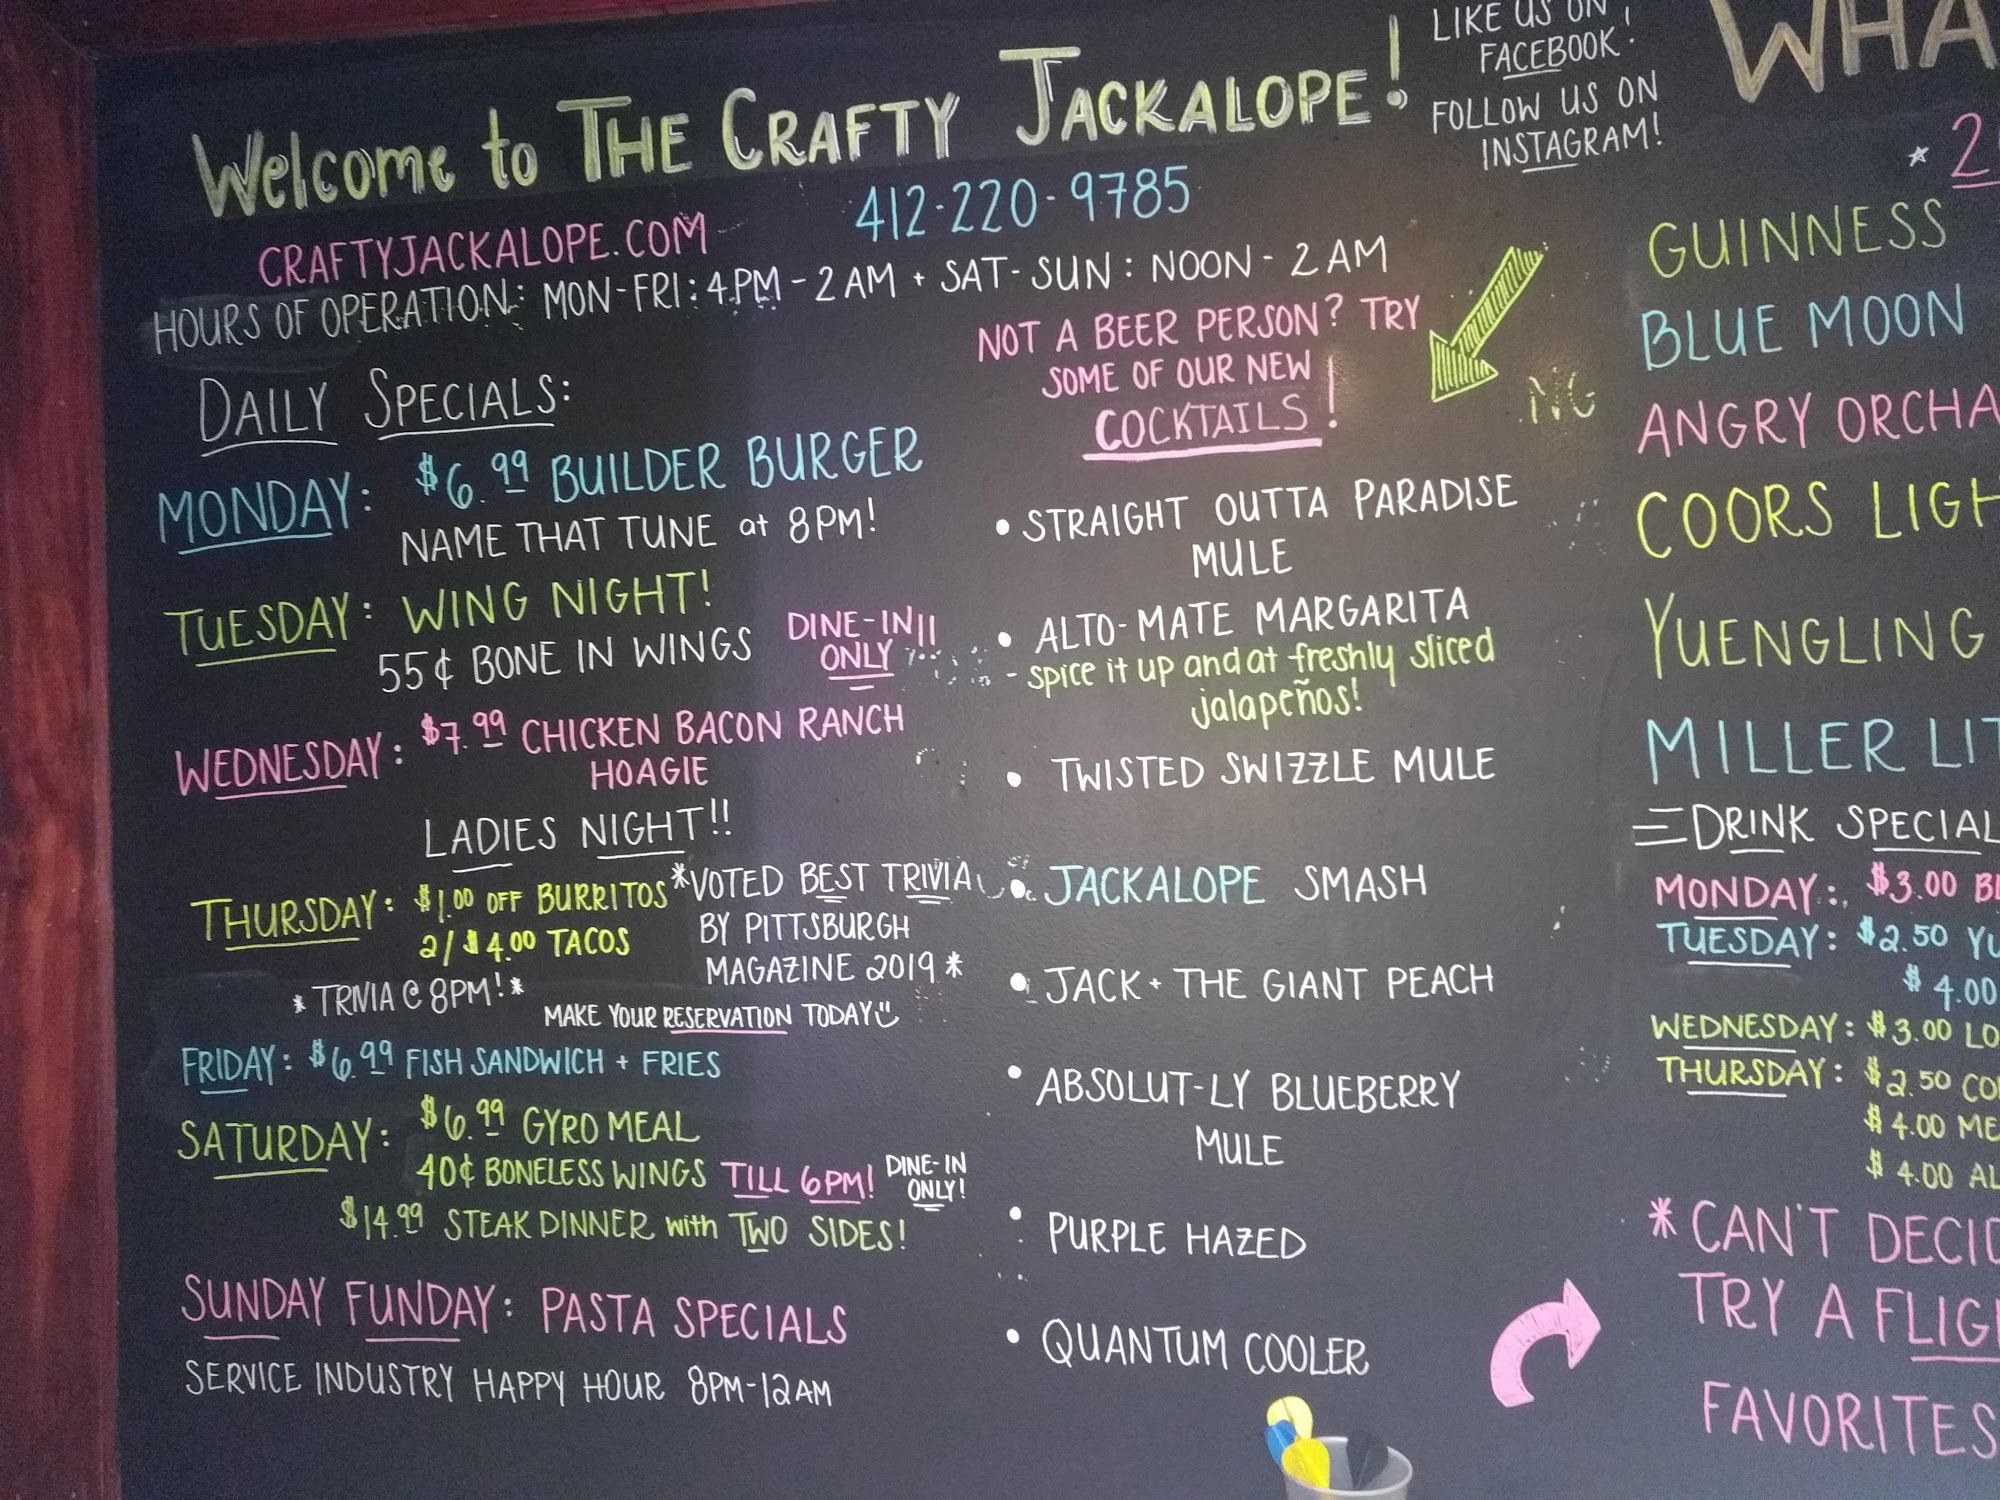 Welcome to THE CRAFTY JACKALOPE!
CRAFTYJACKALOPE.COM
412-220-9785
HOURS OF OPERATION: MON-FRI: 4PM - 2AM + SAT-SUN: NOON - 2AM
LIKE US ON
FACEBOOK!
FOLLOW US ON
INSTAGRAM!
DAILY SPECIALS:
MONDAY: $6.99 BUILDER BURGER
NAME THAT TUNE at 8PM!
TUESDAY: WING NIGHT!
55¢ BONE IN WINGS
DINE-IN
ONLY!!
WEDNESDAY: $7.99 CHICKEN BACON RANCH
HOAGIE
LADIES NIGHT!!
THURSDAY: $1.00 OFF BURRITOS
2/$4.00 TACOS
*TRIVIA @ 8PM!*
*VOTED BEST TRIVIA
BY PITTSBURGH
MAGAZINE 2019*
MAKE YOUR RESERVATION TODAY
FRIDAY: $6.99 FISH SANDWICH + FRIES
SATURDAY: $6.99 GYRO MEAL
40¢ BONELESS WINGS TILL 6PM!
DINE-IN
ONLY!
$14.99 STEAK DINNER with TWO SIDES!
SUNDAY FUNDAY: PASTA SPECIALS
SERVICE INDUSTRY HAPPY HOUR 8PM-12AM
NOT A BEER PERSON? TRY
SOME OF OUR NEW
COCKTAILS!
• STRAIGHT OUTTA PARADISE
MULE
• ALTO-MATE MARGARITA
- spice it up and at freshly sliced
jalapeños!
• TWISTED SWIZZLE MULE
• JACKALOPE SMASH
• JACK + THE GIANT PEACH
• ABSOLUT-LY BLUEBERRY
MULE
• PURPLE HAZED
• QUANTUM COOLER
WHA
* 2
GUINNESS
BLUE MOON
NG
ANGRY ORCHA
COORS LIGH
YUENGLING
MILLER LIT
DRINK SPECIAL
MONDAY: $3.00 B
TUESDAY: $2.50 YU
$4.00
WEDNESDAY: $3.00 LO
THURSDAY: $2.50 CO
$4.00 ME
$4.00 AL
* CAN'T DECID
TRY A FLIG
FAVORITES